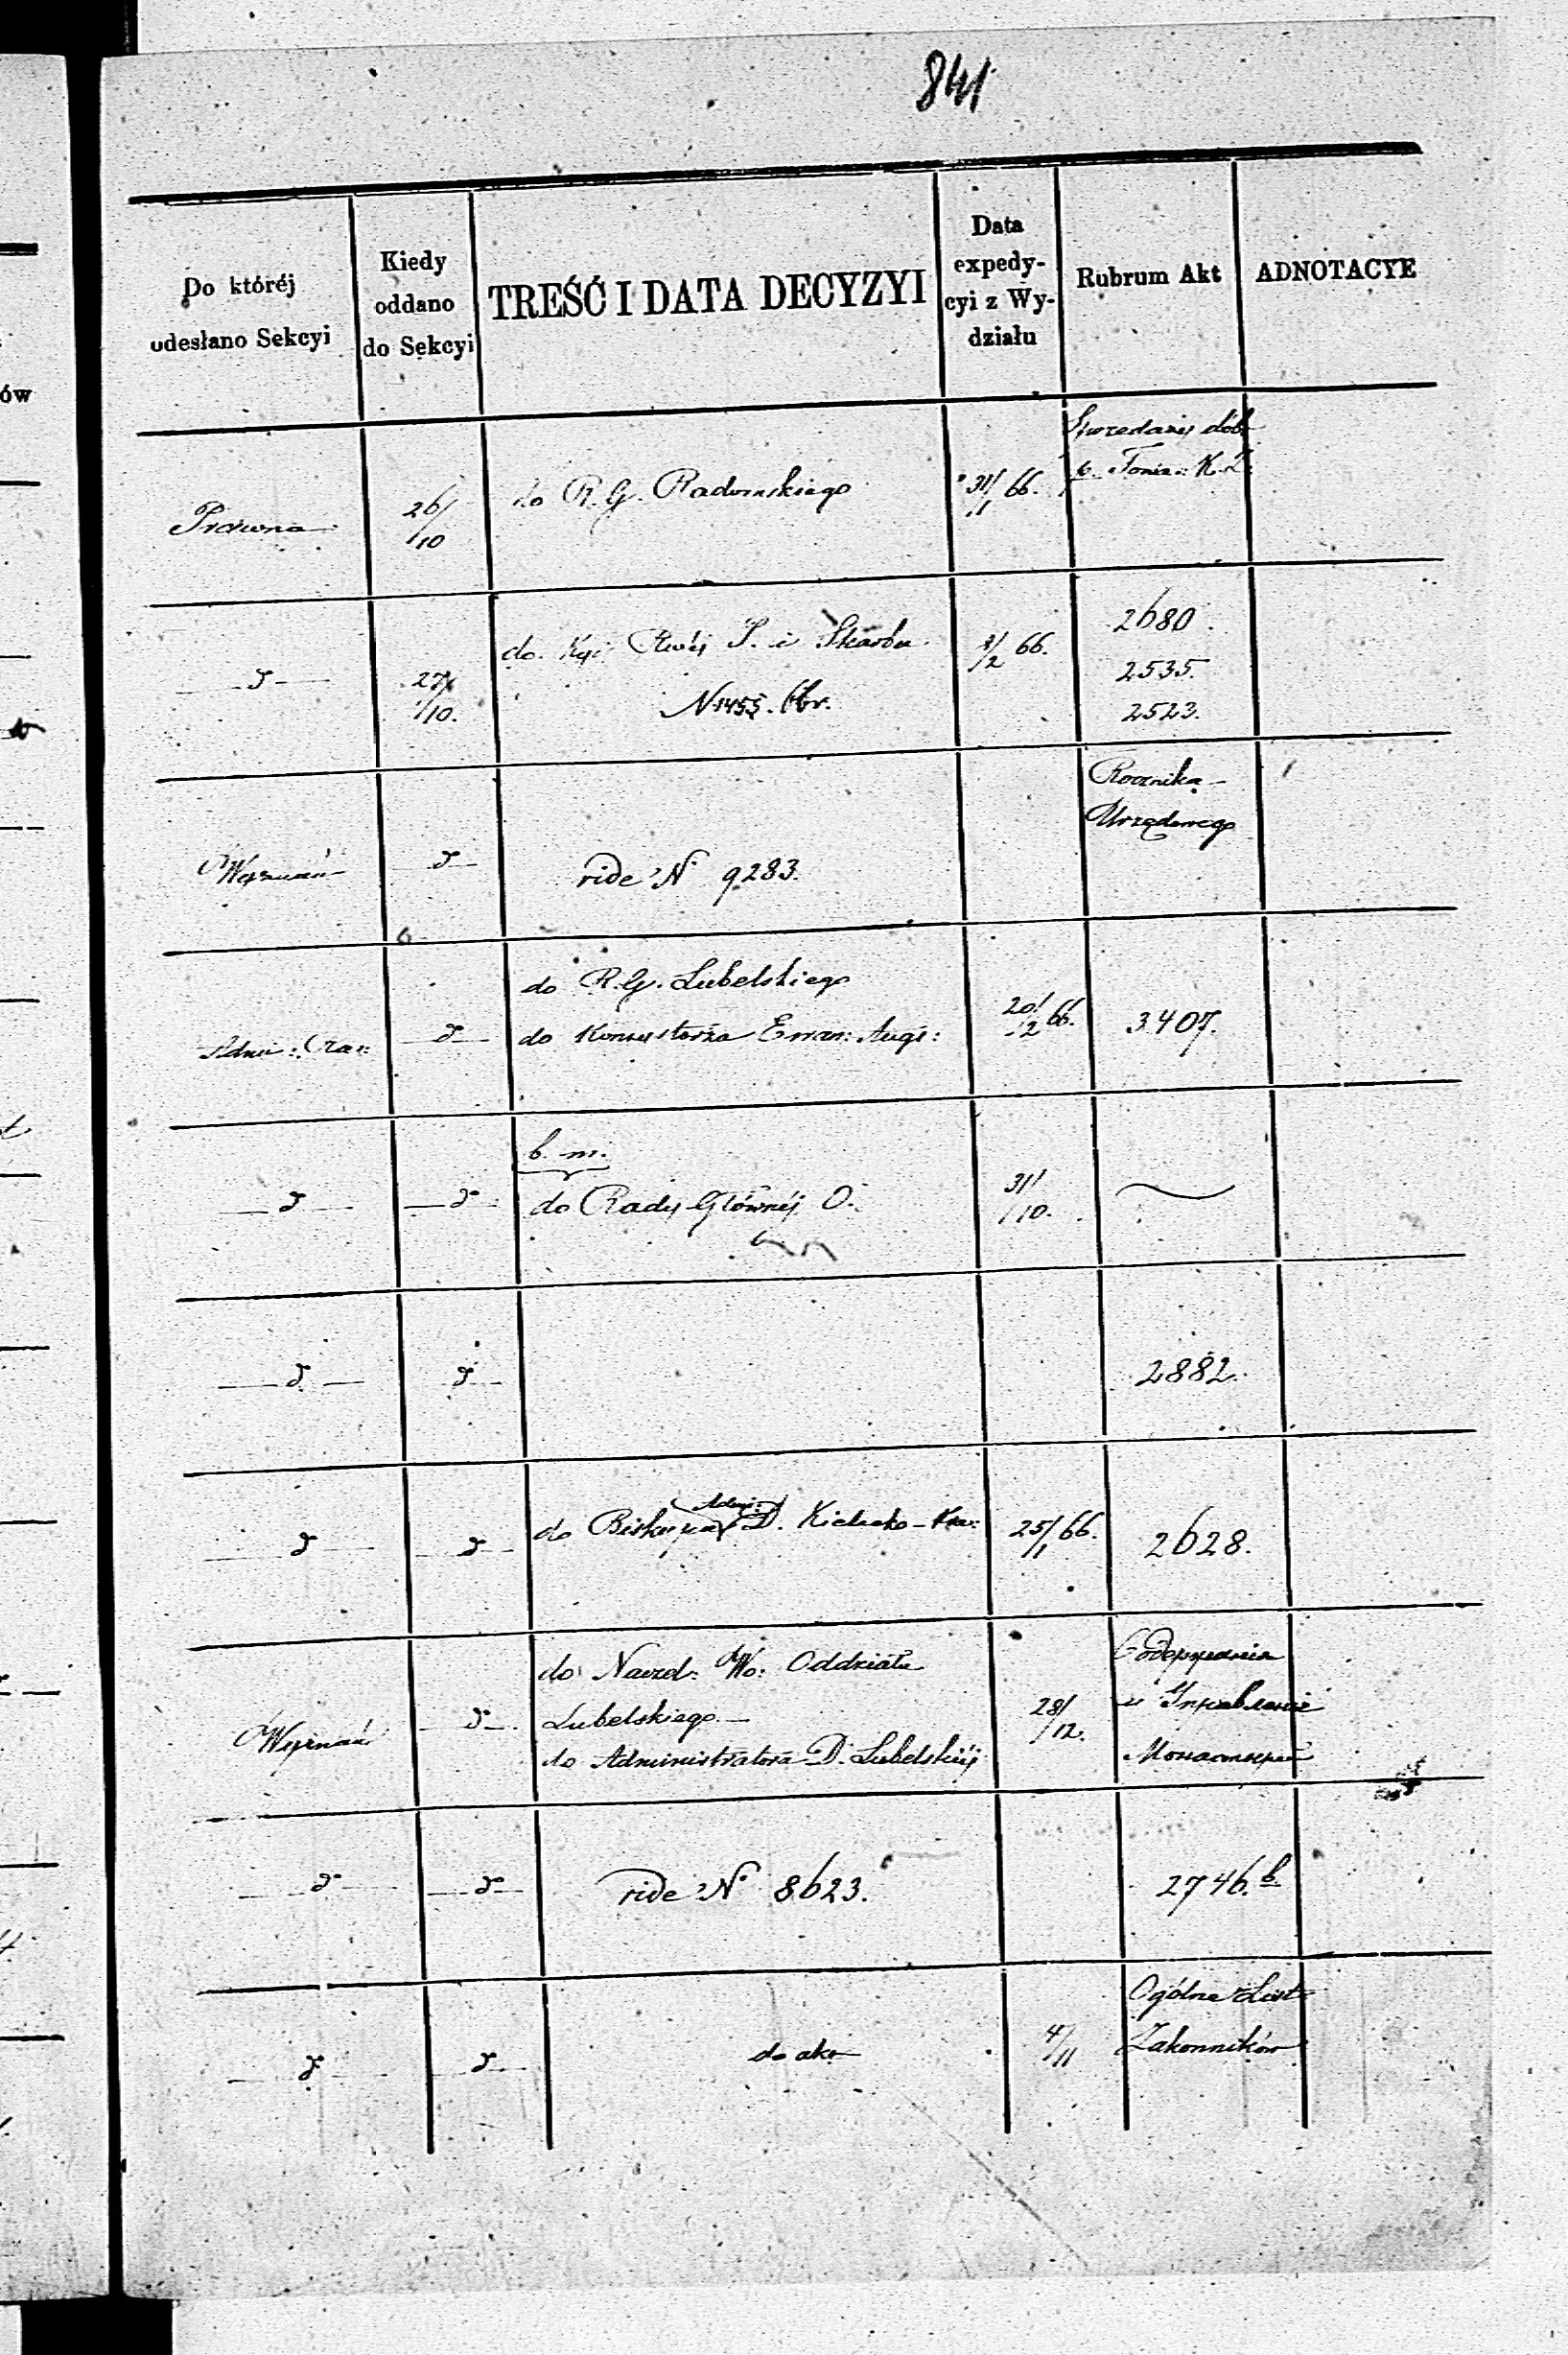 841
Do któréj
udesłano Sekcyi
Kiedy
oddano
do Sekcyi
TREŚĆ I DATA DECYZYI
Data
expedy-
cyi z Wy-
działu
Rubrum Akt
ADNOTACYE
ów
Prawna
26/10
do R. G. Radomskiego
31/1 66.
Sprzedaży dób
K. Z.
27/10.
do P. i Skarbu
N 1455.
/2 66.
2680.
2535.
2523.
Wyznań
vide N 9283.
Rocznika
Urzędowego
do R. G. Lubelskiego
do Konsystorza Ewan: Augs:
20/12 66.
3407.
b. m.
do Rady Głównéj O.
31/10.
2882.
do Biskupa Admi: D. Kielecko-Kra:
25/1 66.
2628.
Wyznań
do Naczel: Wo: Oddziału
Lubelskiego
do Administratora D. Lubelskiéj
28/12.
и Управление
Монастырей
vide N 8623.
2746. b
do akt
4/11
Ogólne List
Zakonników